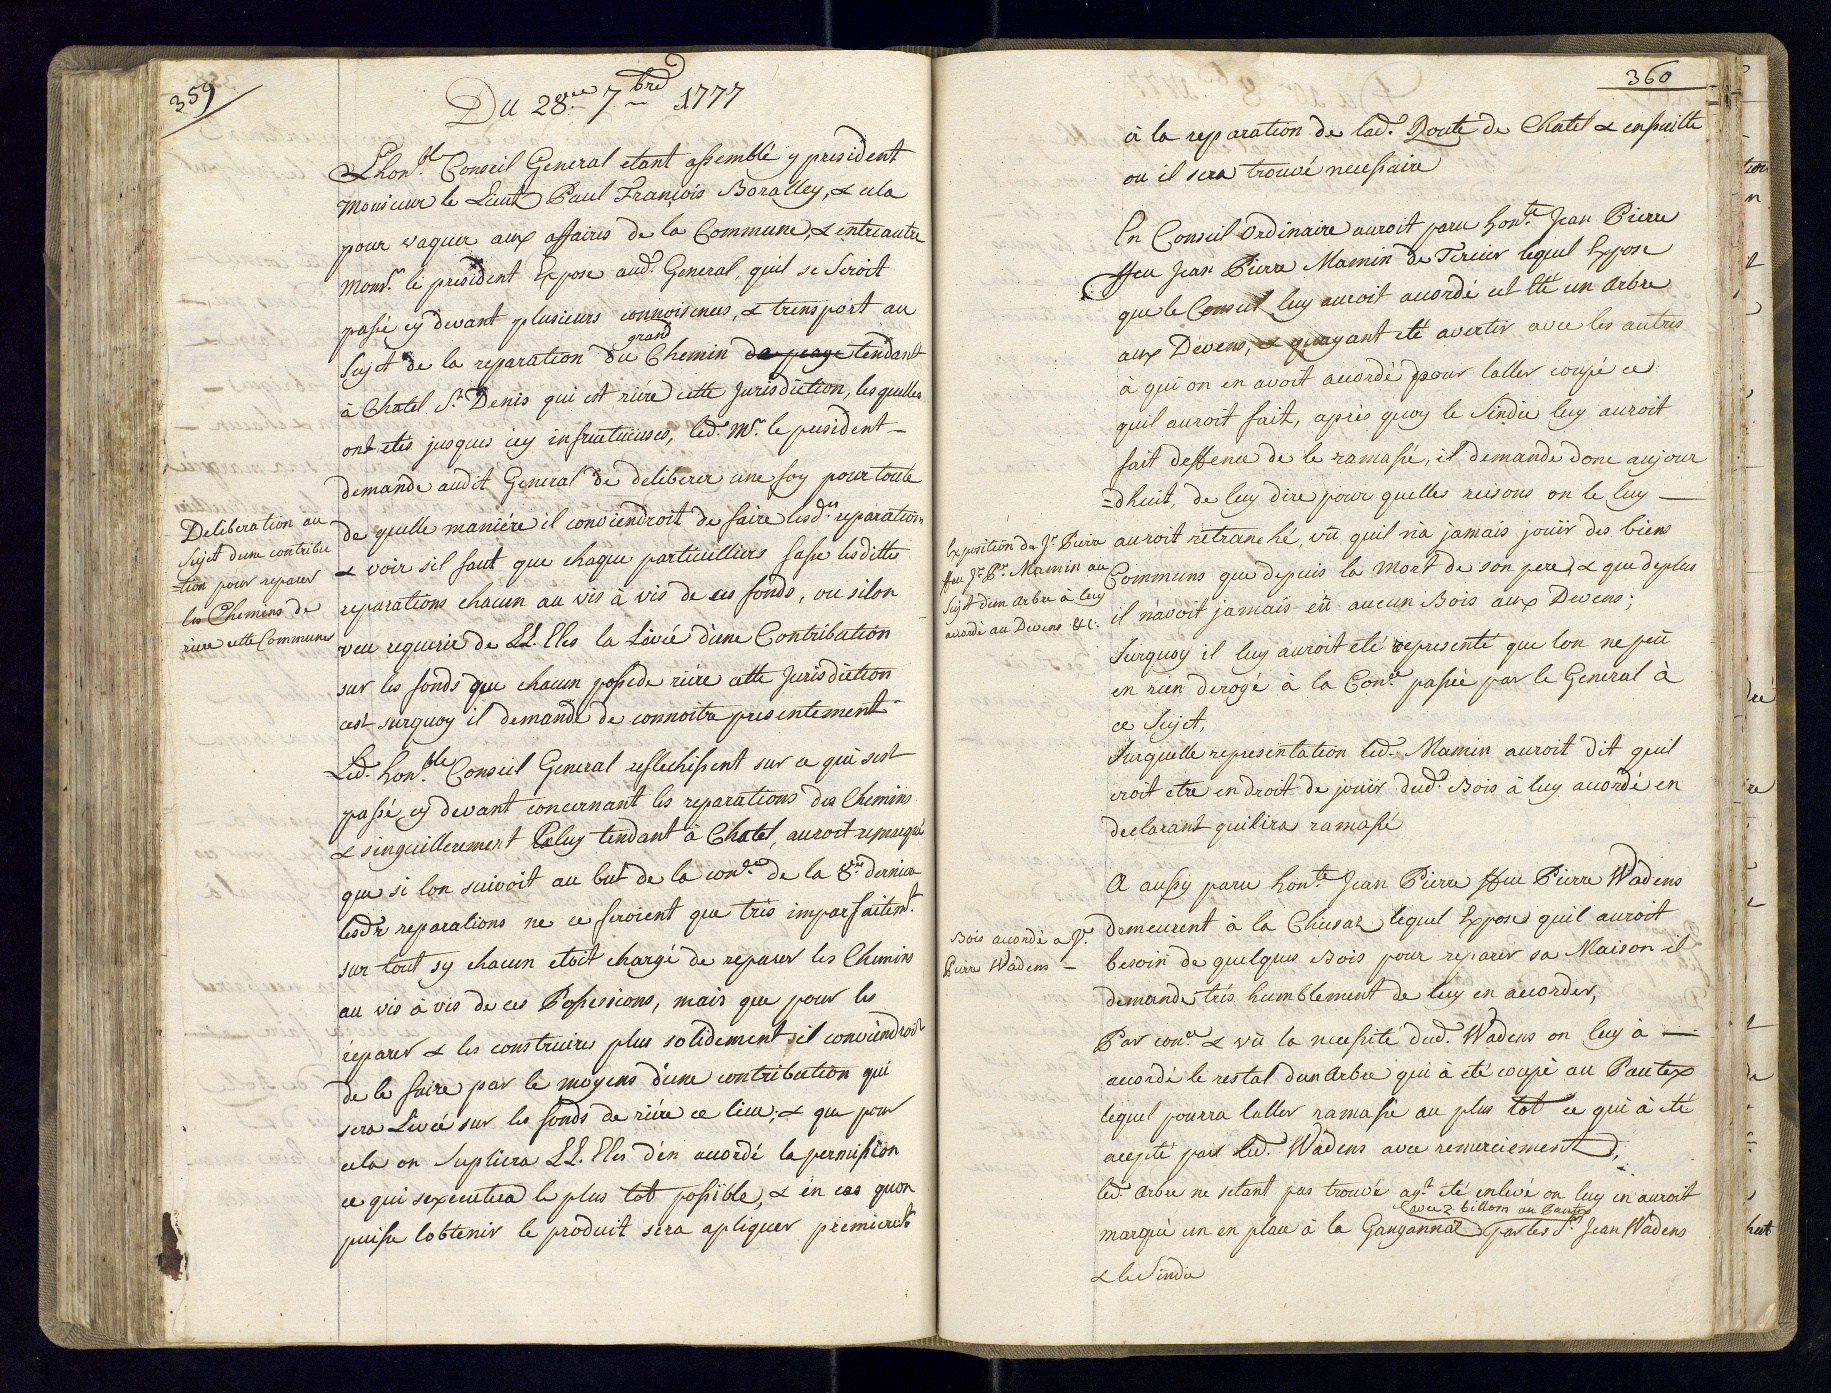 359
Du 28.me 7.bre 1777
L'hon.ble Conseil General etant assemblé y president
Monsieur le Lieut Paul François Boralley, & cela
pour vaquer aux affaires de la Commune, & entreautre
Mons.r le president Expose aud. General, quil se seroit
passé cy devant plusieurs connoisences, & trensport au
sujet de la reparation du grand Chemin de peage tendant
à Chatel S.t Denis qui est riére cette Jurisdiction, lesquelles
ont etés jusques icy infructueuses, led. Mr. le president
demande audit General de deliberer une foy pour toute
de quelle maniére il conviendroit de faire lesd.es reparations
& voir sil faut que chaque particulliers fasse lesdittes
reparations chacun au vis à vis de ces fonds, ou silon
veu requerir de LL. EEes la Livée d'une Contribution
sur les fonds que chacun possede riére cette Jurisdiction
cest surquoy il demande de connoitre presentement
Led. hon.ble Conseil General reflechissent sur ce qui sest
passé cy devant concernant les reparations des Chemins
& singuillerement Celuy tendant à Chatel, auroit remarqué
que si lon suivoit au but de la con.ce de la 8.re derniere
lesd.es reparations ne ce feroient que très imparfaitem.t
sur tout sy chacun etoit chargé de reparer les Chemins
au vis à vis de ces Possessions, mais que pour les
réparer & les construires plus solidement, il conviendroit
de le faire par le moyens d'une contribution qui
sera Livée sur les fonds de riére ce lieu, & que pour
cela on Supliera LL. EEes d'én accordé la permission
ce qui sexecutera le plus tot possible, & en cas quon
puisse lobtenir le produit sera apliquer premieremt
Deliberation au
sujet dune contribu
=tion pour reparer
les Chemins de
riere cette Commune
360
à la reparation de lad. Route de Chatel & ensuitte
ou il sera trouvé necessaire
En Conseil Ordinaire auroit paru hon.te Jean Pierre
ffeu Jean Pierre Mamin de Tercier lequel Expose
que le Conseil luy auroit accordé cet Eté un Arbre
aux Devens, & quayant eté avertir avec les autres
à qui on en avoit accordé pour laller coupé ce
quil auroit fait, après quoy le Sindic luy auroit
fait deffence de le ramassé, il demande donc aujour
=dhuit, de luy dire pour quelles reisons on le luy
auroit retranché, vû quil n'a jamais jouiir des biens
Communs que depuis la Mort de son pere, & que deplus
il n'avoit jamais eû aucun Bois aux Devens;
Surquoy il luy auroit eté representé que lon ne peu
en rien derogé à la Con.ce passée par le General à
ce Sujet,
Surquelle representation led. Mamin auroit dit quil
croit etre en droit de jouiir dud. Bois à luy accordé en
declarant quil ira ramassé
Exposition de J.n Pierre
ffeu J.n P.re Mamin au
sujet dun Arbre à luy
accordé au Devens &c:
A aussy paru hon.te Jean Pierre ffeu Pierre Wadens
demeurent à la Chiesaz lequel Expose quil auroit
besoin de quelques Bois pour reparer sa Maison il
demande trés humblement de luy en accorder,
Par con.ce & vû la necessité dud. Wadens on luy à
accordé le restal dun Arbre qui à eté coupé au Pautex
lequel pourra laller ramassé au plus tot ce qui à eté
acepté par led. Wadens avec remerciement,
led. Arbre ne setant pas trouvé ay.t eté enlevé on luy en auroit
marqué un en place à la Gangannaz avec 2 billom au Pautex par les S.rs Jean Wadens
& le Sindic
Bois accordé a J.n
Pierre Wadens